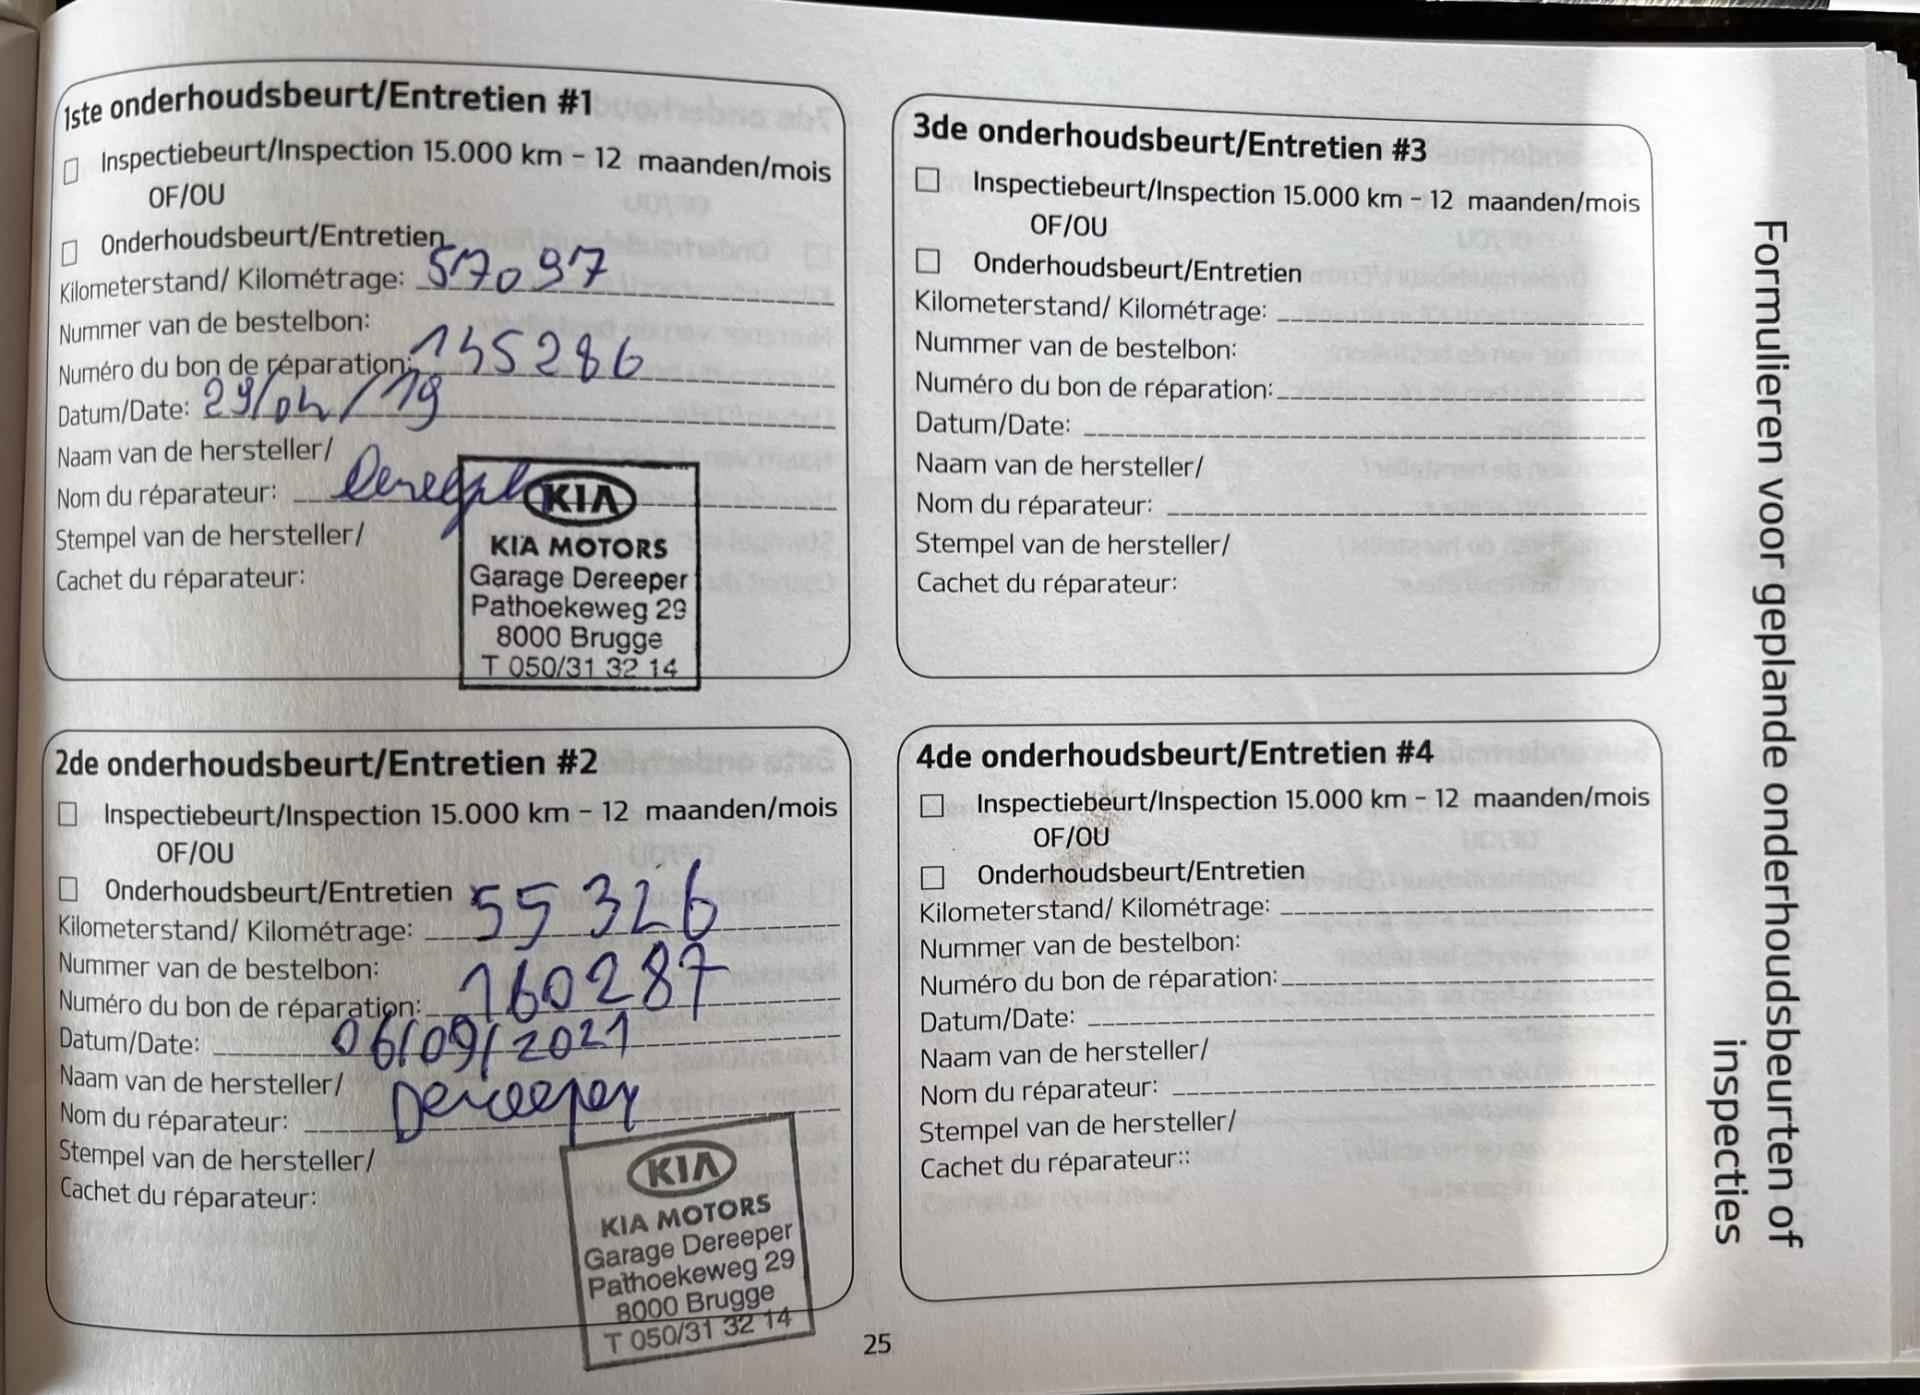 1ste onderhoudsbeurt/Entretien #1
Inspectiebeurt/Inspection 15.000 km - 12 maanden/mois
OF/OU
Onderhoudsbeurt/Entretien
Kilometerstand/ Kilométrage: 57097
Nummer van de bestelbon:
Numéro du bon de réparation: 135286
Datum/Date: 29/04/19
Naam van de hersteller/
Nom du réparateur:
Stempel van de hersteller/
Cachet du réparateur:
KIA
KIA MOTORS
Garage Dereeper
Pathoekeweg 29
8000 Brugge
T 050/31 32 14
2de onderhoudsbeurt/Entretien #2
Inspectiebeurt/Inspection 15.000 km - 12 maanden/mois
OF/OU
Onderhoudsbeurt/Entretien
Kilometerstand/ Kilométrage: 55326
Nummer van de bestelbon:
Numéro du bon de réparation: 160287
Datum/Date: 06/09/2021
Naam van de hersteller/
Nom du réparateur: Dereeper
Stempel van de hersteller/
Cachet du réparateur:
KIA
KIA MOTORS
Garage Dereeper
Pathoekeweg 29
8000 Brugge
T 050/31 32 14
3de onderhoudsbeurt/Entretien #3
Inspectiebeurt/Inspection 15.000 km - 12 maanden/mois
OF/OU
Onderhoudsbeurt/Entretien
Kilometerstand/ Kilométrage:
Nummer van de bestelbon:
Numéro du bon de réparation:
Datum/Date:
Naam van de hersteller/
Nom du réparateur:
Stempel van de hersteller/
Cachet du réparateur:
4de onderhoudsbeurt/Entretien #4
Inspectiebeurt/Inspection 15.000 km - 12 maanden/mois
OF/OU
Onderhoudsbeurt/Entretien
Kilometerstand/ Kilométrage:
Nummer van de bestelbon:
Numéro du bon de réparation:
Datum/Date:
Naam van de hersteller/
Nom du réparateur:
Stempel van de hersteller/
Cachet du réparateur::
Formulieren voor geplande onderhoudsbeurten of
inspecties
25